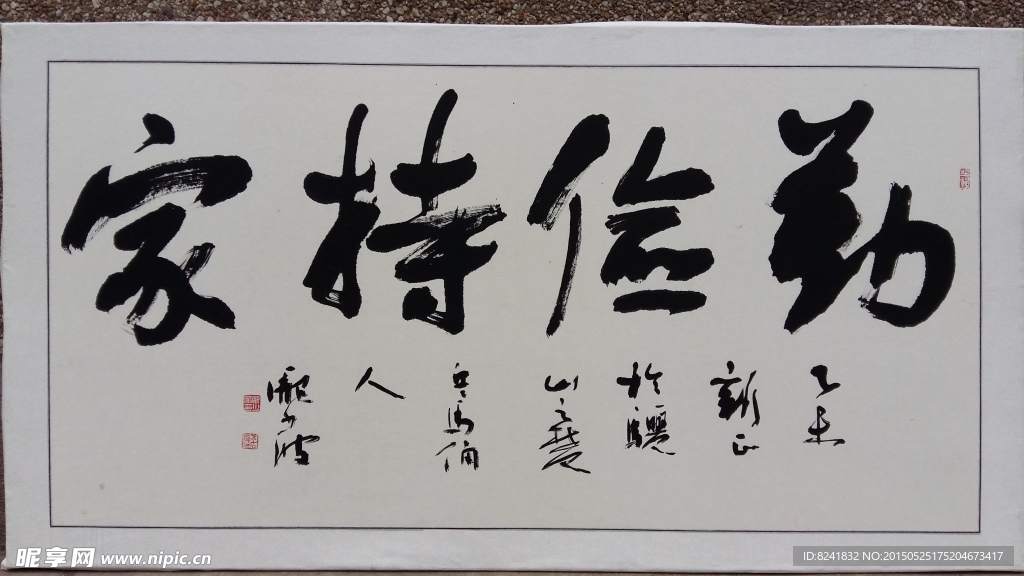 勤俭持家
乙未
新正
於骊
山之麓
兵马俑
人
昵享网 www.nipic.cn
ID:8241832 NO:20150525175204673417